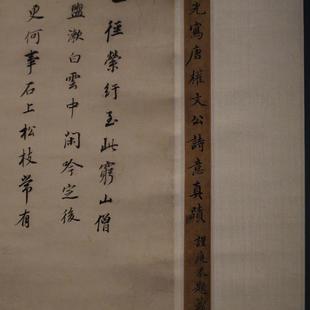 寫唐權文公詩意真蹟
徑縈紆至此窮山僧
盥漱白雲中閑吟定後
更何事石上松枝常有